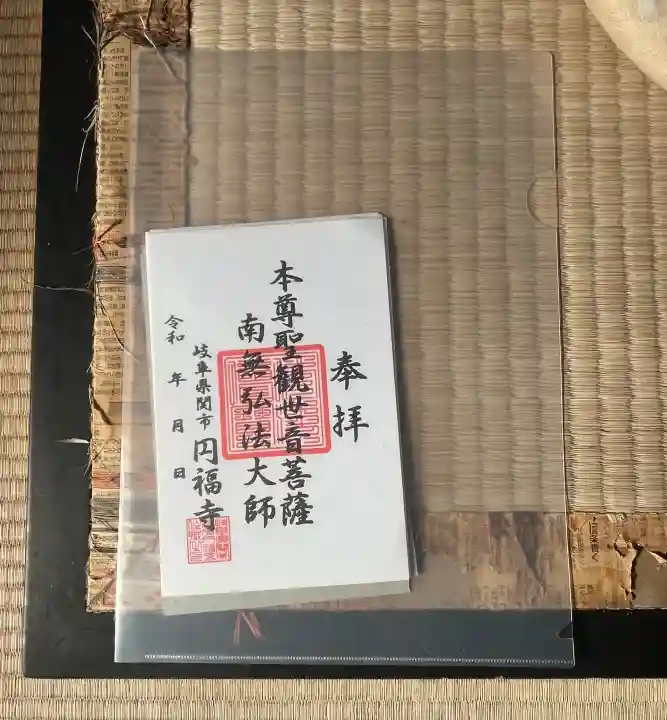 奉拝
本尊聖観世音菩薩
南無弘法大師
岐阜県関市 円福寺
令和 年 月 日